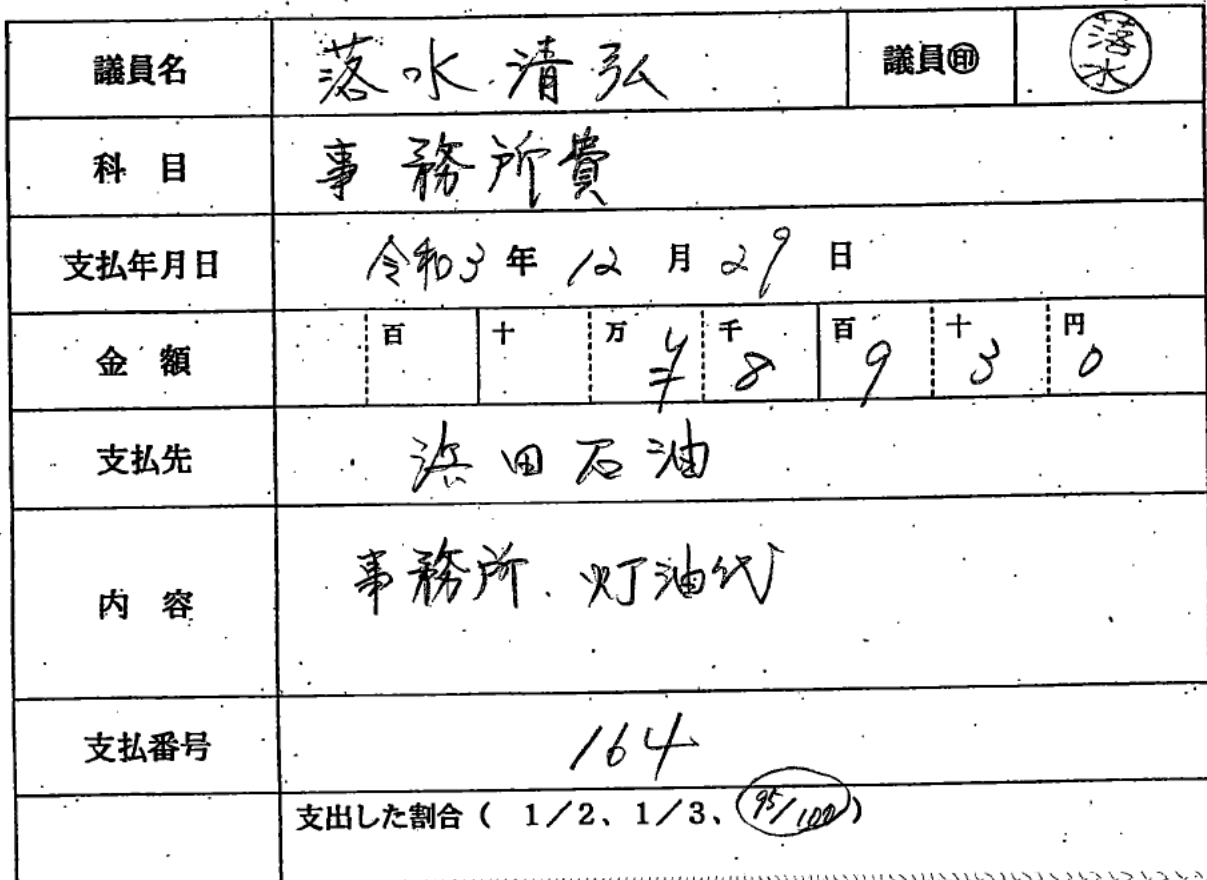 議員名 落水清弘 議員㊞ 落水
科目 事務所費
支払年月日 令和3年12月29日
金額 百 十 万 ¥ 千 8 百 9 十 3 円 0
支払先 浜田石油
内容 事務所、灯油代
支払番号 164
支出した割合（ 1／2、1／3、95/100）